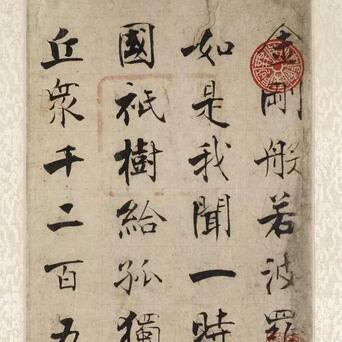 金剛般若波羅
如是我聞一時
國祇樹給孤獨
丘衆千二百五